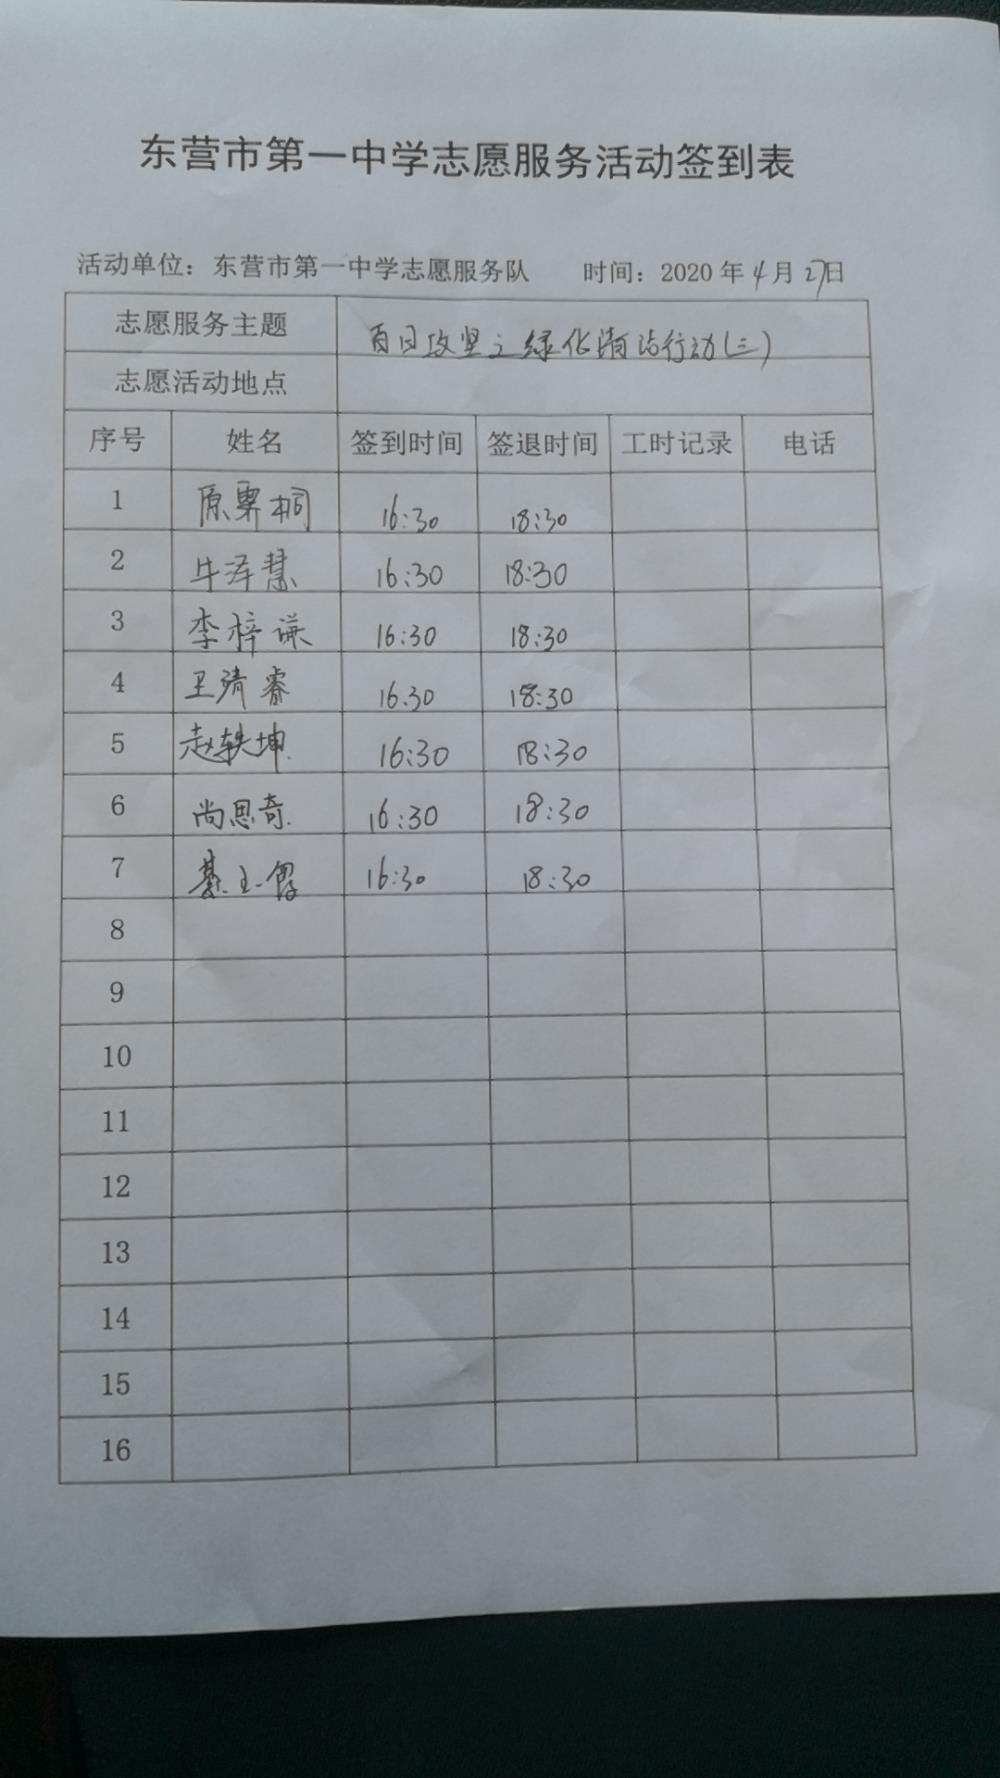 东营市第一中学志愿服务活动签到表
活动单位：东营市第一中学志愿服务队 时间：2020年4月27日
志愿服务主题 百日攻坚之绿化清洁行动(三)
志愿活动地点
序号 姓名 签到时间 签退时间 工时记录 电话
1 原粟桐 16:30 18:30
2 牛泽慧 16:30 18:30
3 李梓谦 16:30 18:30
4 王清睿 16:30 18:30
5 赵轶坤 16:30 18:30
6 尚思奇 16:30 18:30
7 16:30 18:30
8
9
10
11
12
13
14
15
16